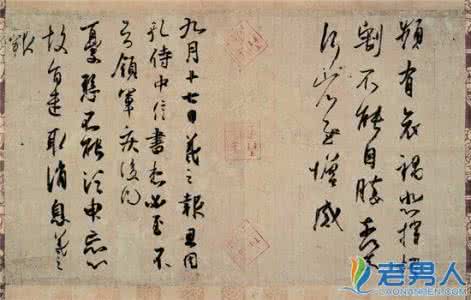 頻有哀禍悲摧切
割不能自勝奈何奈
何省慰增感
九月十七日羲之報且因
孔侍中信書想必至不
知領軍疾後問
憂懸不能須臾忘心
故旨遣取消息羲之
報
老男人
LAONANREN.COM